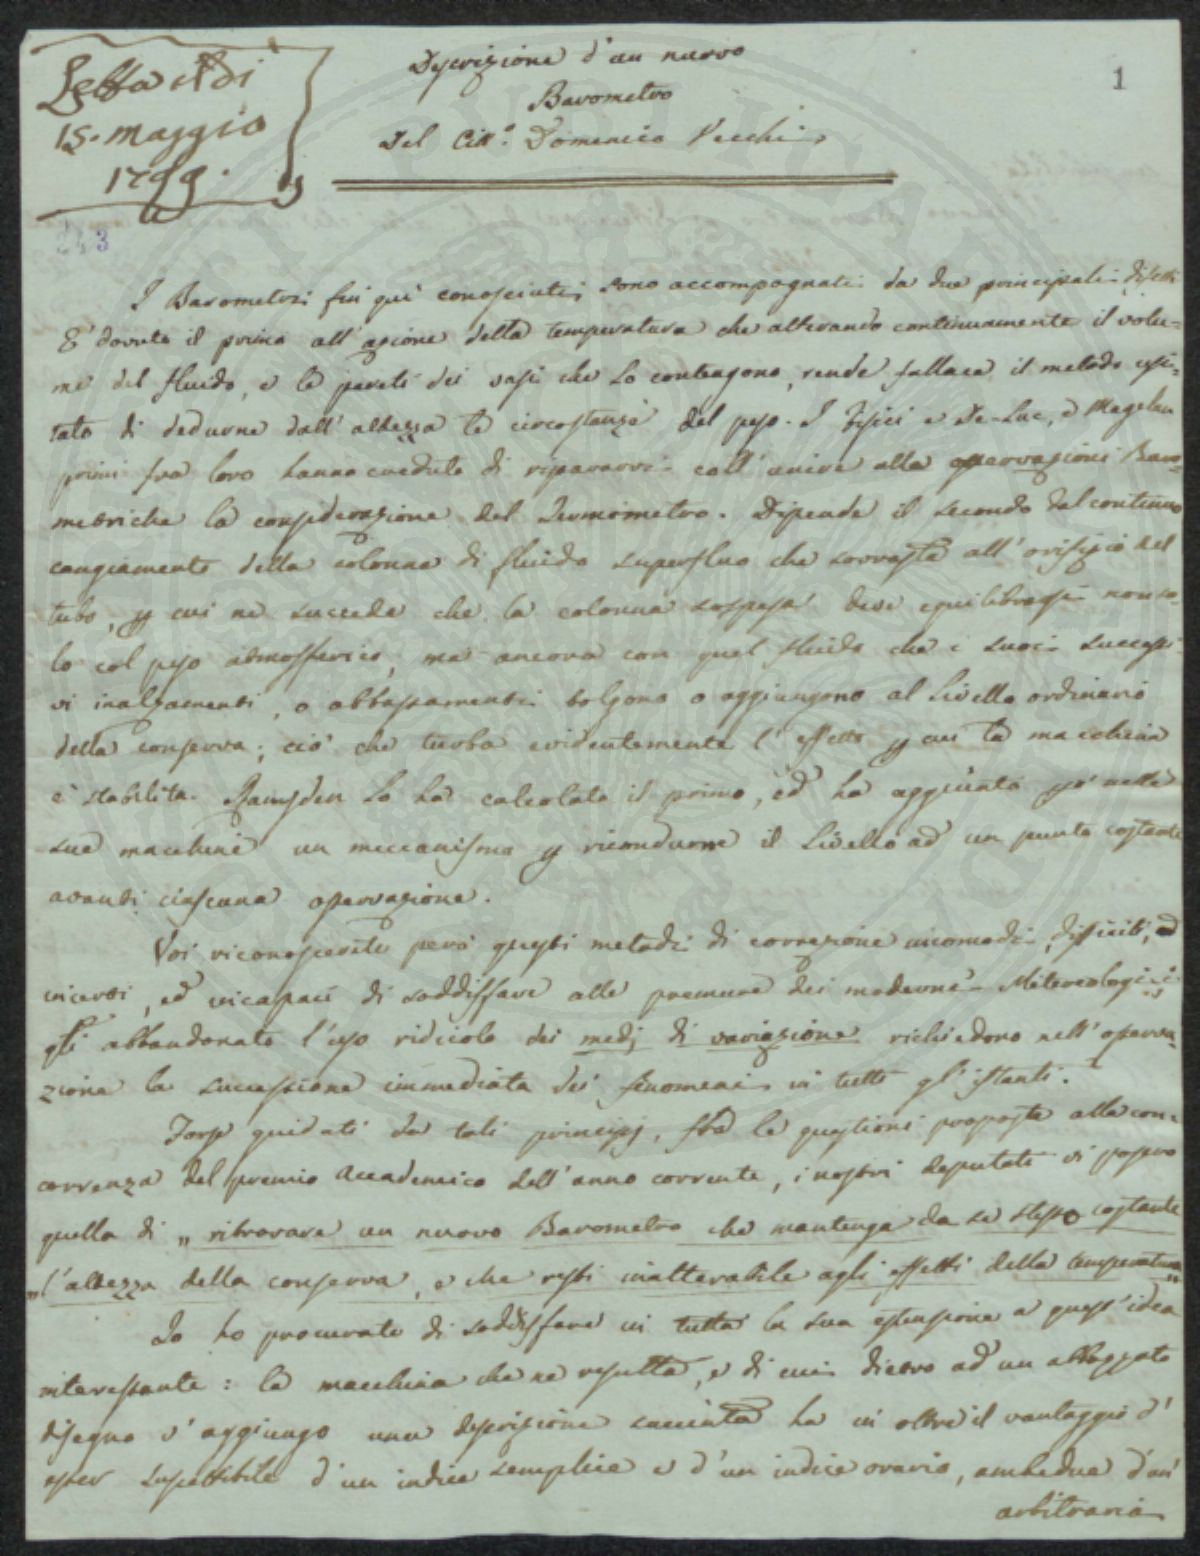 Letta il dì
15. Maggio
1799.
243
1
Descrizione d'un nuovo
Barometro
Del Citt.º Domenico Vecchi
I Barometri fin quì conosciuti sono accompagnati da due principali difetti
E' dovuto il primo all'azione della temperatura che alterando continuamente il volu=
me del fluido, e le pareti dei vasi che lo contengono, rende fallace il metodo usi=
tato di dedurne dall'altezza le circostanze del peso. I Fisici e De-Luc, e Magellan
primi fra loro hanno creduto di ripararvi coll'unire alla osservazioni Baro=
metriche la considerazione del Termometro. Dipende il secondo dal continuo
cangiamento della colonna di fluido superfluo che sovrasta all'orifizio del
tubo, p cui ne succede che la colonna sospesa deve equilibrarsi non so=
lo col peso atmosferico, ma ancora con quel fluido che i suoi successi
vi inalzamenti, o abbassamenti tolgono o aggiungono al livello ordinario
della conserva; ciò che turba evidentemente l'effetto p cui la macchina
è stabilita. Ramsden lo ha calcolato il primo, ed ha aggiunto pò nelle
sue macchine un meccanismo p ricondurre il livello ad un punto costante
avanti ciascuna osservazione.
Voi riconosceste però questi metodi di correzione incomodi, difficili, ed
incerti, ed incapaci di soddisfare alle premure dei moderni Metereologici
gli abbandonato l'uso ridicolo dei medj di variazione richiedono nell'osserva=
zione la successione immediata dei fenomeni in tutti gl'istanti.
Forse guidati da tali principj, fra le questioni proposte alla con=
correnza del premio Accademico dell'anno corrente, i nostri deputati vi posero
quella di „ ritrovare un nuovo Barometro che mantenga da se stesso costante
„ l'altezza della conserva, e che resti inalterabile agli effetti della temperatura„
Io ho procurato di soddisfare in tutta la sua estensione a quest'idea
interessante: la macchina che ne resulta, e di cui dietro ad un abbozzato
disegno v'aggiungo una descrizione succinta ha in oltre il vantaggio d'
esser suscettibile d'un indice semplice e d'un indice orario, ambedue d'un'
arbitraria